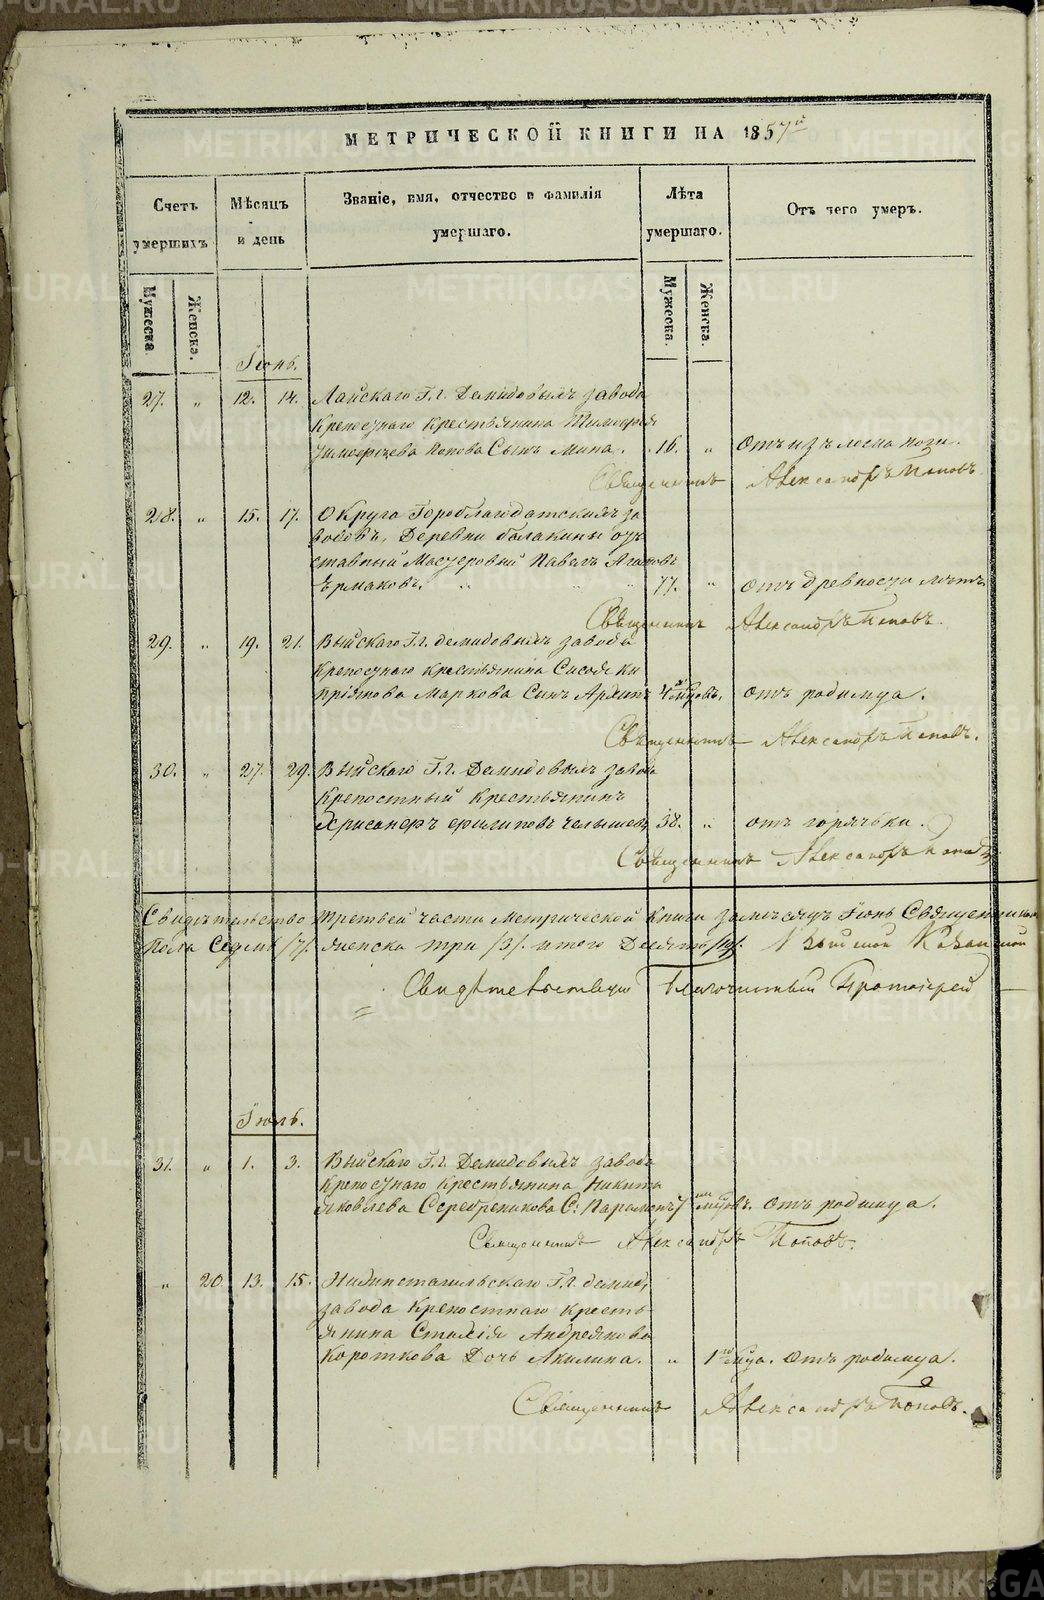 МЕТРИЧЕСКОЙ КНИГИ НА 1857й
Счетъ умершихъ
Мѣсяцъ и день
Званіе, имя, отчество и фамилія умершаго.
Лѣта умершаго.
Отъ чего умеръ.
Мужеска
Женска.
Мужеска.
Женска.
Іюнь.
27. " 12. 14. Лайскаго Г.г. Демидовыхъ завода
Крепостнаго крестьянина Тимофея
Тимофѣева Попова Сынъ Мина. 16. " отъ излома ноги.
Священникъ Александръ Поповъ
28. " 15. 17. Округа Гороблагодатскихъ за
водовъ, Деревни Балакины от
ставный Мастеровый Павелъ Агаповъ
Ермаковъ. 77. " отъ древности лѣтъ
Священникъ Александръ Поповъ.
29. " 19. 21. Выйскаго Г.г. Демидовыхъ завода
Крепостнаго крестьянина Сисоя Ки
пріянова Маркова Сынъ Архипъ 4 м-цовъ. отъ родимца.
Священникъ Александръ Поповъ.
30. " 27. 29. Выйскаго Г.г. Демидовыхъ завода
Крепостный Крестьянинъ
Хрисанфъ Филиповъ Челышевъ 38. " отъ горячьки.
Священникъ Александръ Поповъ
Свидѣтельство Третьей части Метрической Книги за мѣсяцъ Іюнь Священ
Пола Седмь /7/. женска три /3/. итого Десять /10/. Выйской Казанской
Свидѣтельствую Благочинный Протоіерей
Іюль.
31. " 1. 3. Выйскаго Г.г. Демидовыхъ завода
Крепостнаго Крестьянина Никиты
Яковлева Серебреникова С: Парамонъ 7ми м-цовъ. отъ родимца.
Священникъ Александръ Поповъ.
" 20. 13. 15. Нижнетагильскаго Г.г. Демид:
завода Крепостнаго кресть
янина Стахія Андреянова
Короткова Дочь Акилина. " 1го м-ца. отъ родимца.
Священникъ Александръ Поповъ.
METRIKI.GASO-URAL.RU